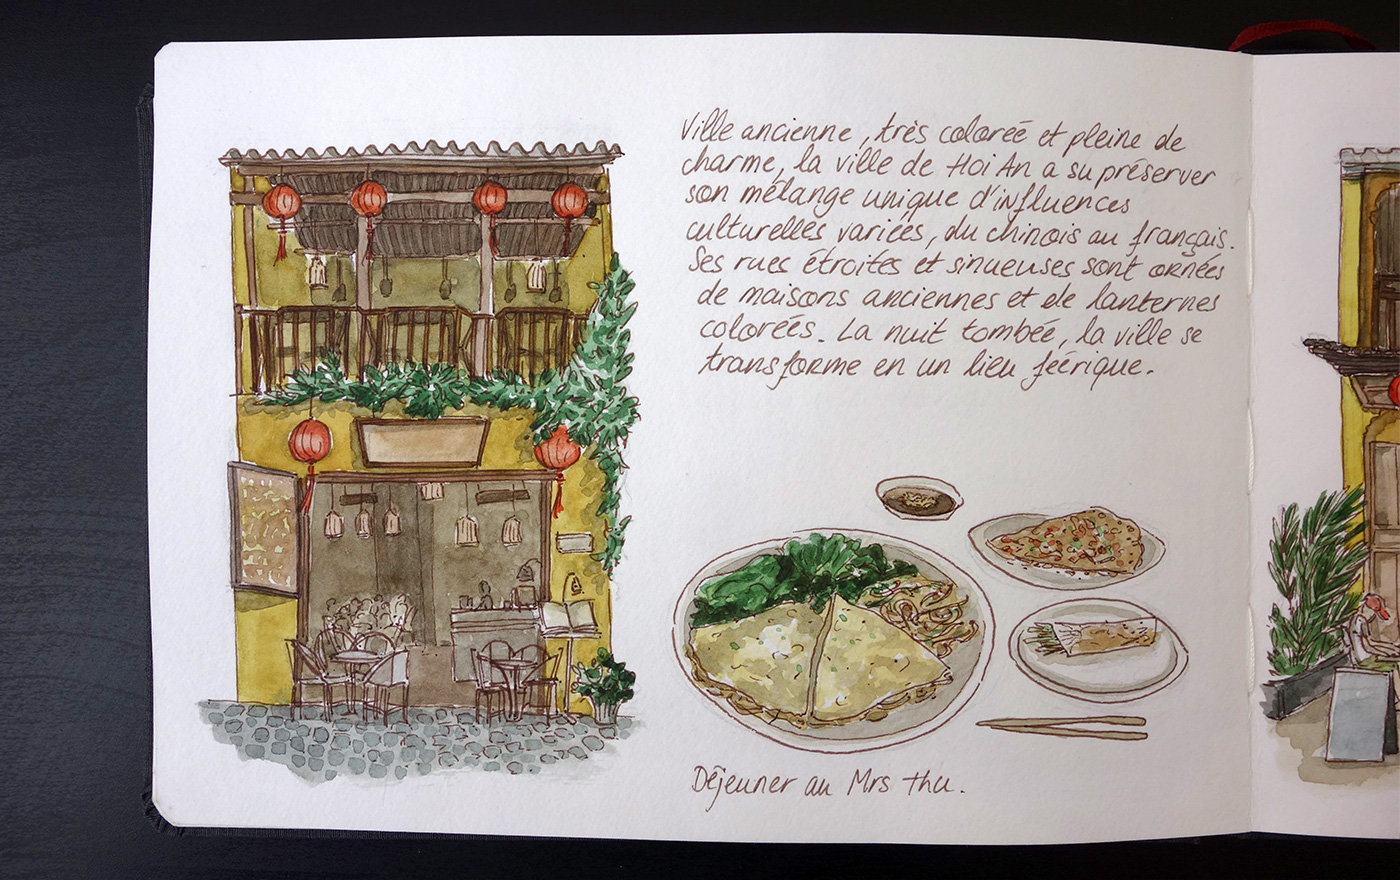 Ville ancienne, très coloreé et pleine de
charme, la ville de Hoi An a su préserver
son mélange unique d'influences
culturelles variées, du chinois au français.
Ses rues étroites et sinueuses sont ornées
de maisons anciennes et de lanternes
colorées. La nuit tombée, la ville se
transforme en un lieu féérique.
Déjeuner au Mrs Thu.